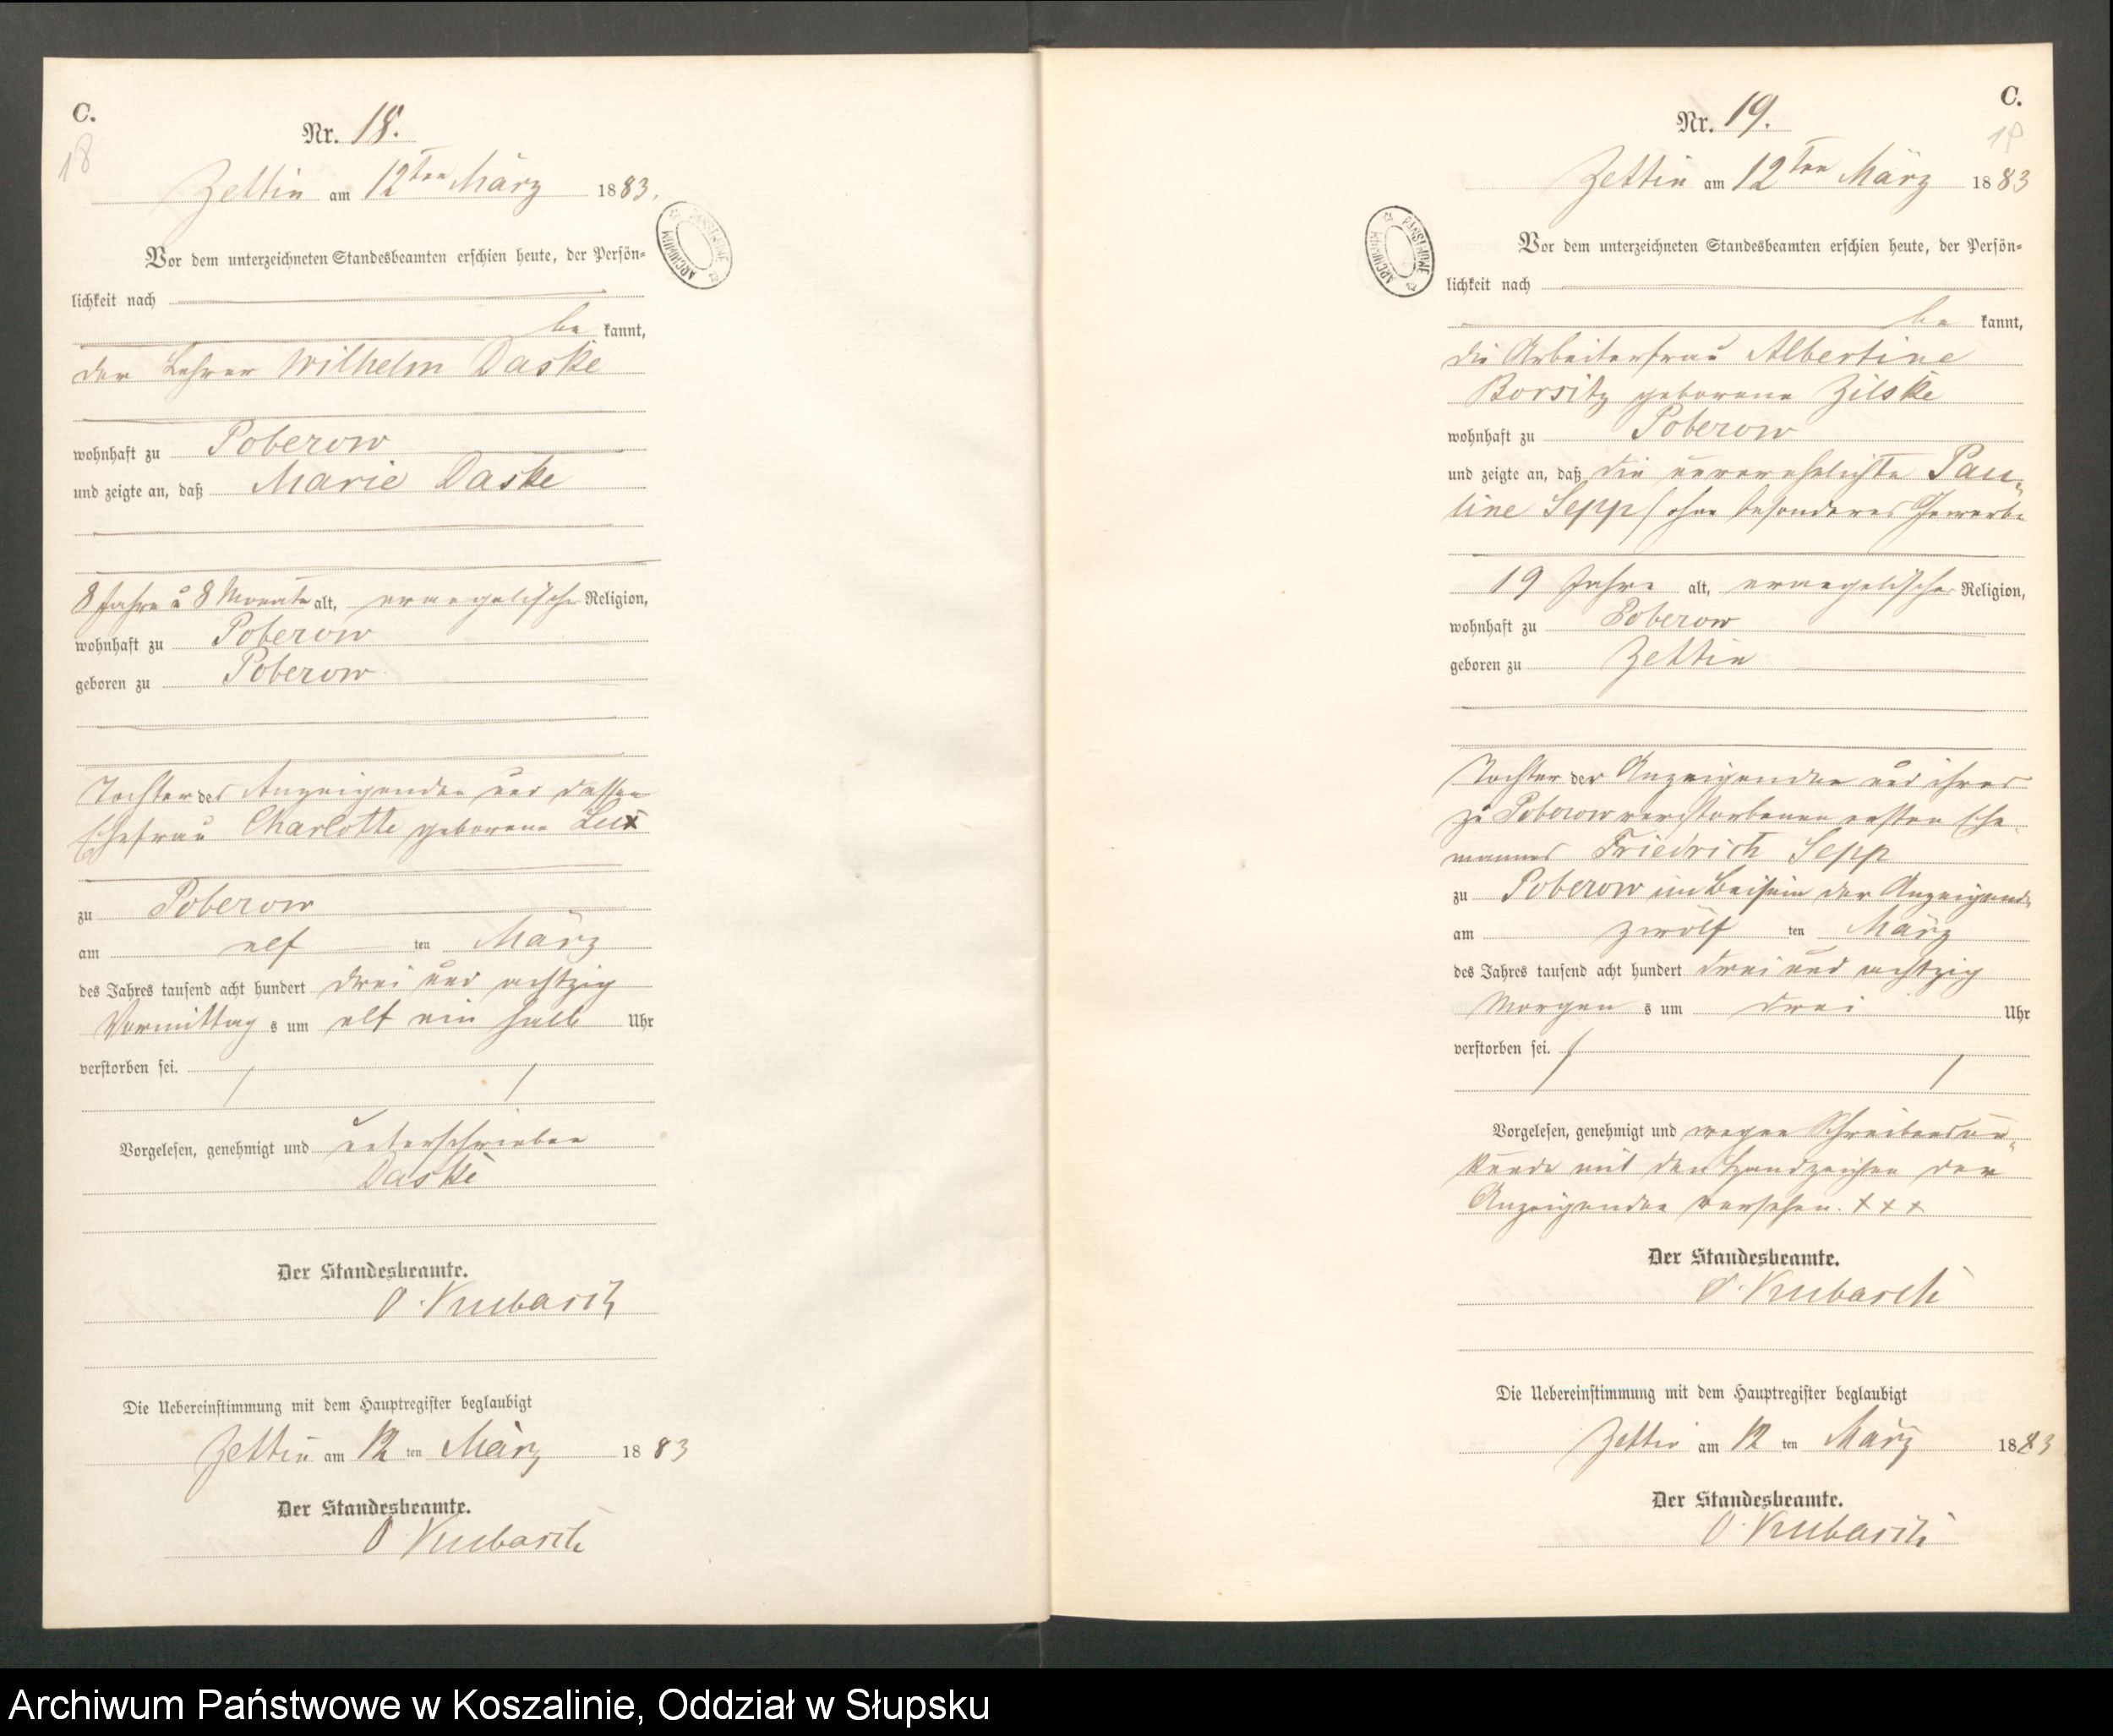 C.
18
Nr. 18.
Zettin am 12ten März 1883.
Vor dem unterzeichneten Standesbeamten erschien heute, der Persön-
lichkeit nach
be kannt,
der Lehrer Wilhelm Daske
wohnhaft zu Poberow
und zeigte an, daß Marie Daske
8 Jahre u 8 Monate alt, evangelischer Religion,
wohnhaft zu Poberow
geboren zu Poberow
Tochter des Anzeigenden und dessen
Ehefrau Charlotte geborene Lux
zu Poberow
am elf ten März
des Jahres tausend acht hundert drei und achtzig
Vormittag s um elf ein halb Uhr
verstorben sei.
Vorgelesen, genehmigt und unterschrieben
Daske
Der Standesbeamte.
O. Krubasch
Die Uebereinstimmung mit dem Hauptregister beglaubigt
Zettin am 12 ten März 1883
Der Standesbeamte.
O Krubasch
ARCHIWUM PAŃSTWOWE
C.
19
Nr. 19.
Zettin am 12ten März 1883
Vor dem unterzeichneten Standesbeamten erschien heute, der Persön-
lichkeit nach
be kannt,
die Arbeiterfrau Albertine
Borsitz geborene Zilske
wohnhaft zu Poberow
und zeigte an, daß die unverehelichte Pau-
line Sepp, ohne besonderes Gewerbe
19 Jahre alt, evangelischer Religion,
wohnhaft zu Poberow
geboren zu Zettin
Tochter der Anzeigenden und ihres
zu Poberow verstorbenen ersten Ehe-
mannes Friedrich Sepp
zu Poberow im Beisein der Anzeigenden
am zwölf ten März
des Jahres tausend acht hundert drei und achtzig
Morgen s um drei Uhr
verstorben sei.
Vorgelesen, genehmigt und wegen Schreibensun-
kunde mit den Handzeichen der
Anzeigenden versehen. + + +
Der Standesbeamte.
O. Krubasch
Die Uebereinstimmung mit dem Hauptregister beglaubigt
Zettin am 12 ten März 1883
Der Standesbeamte.
O. Krubasch
ARCHIWUM PAŃSTWOWE
Archiwum Państwowe w Koszalinie, Oddział w Słupsku